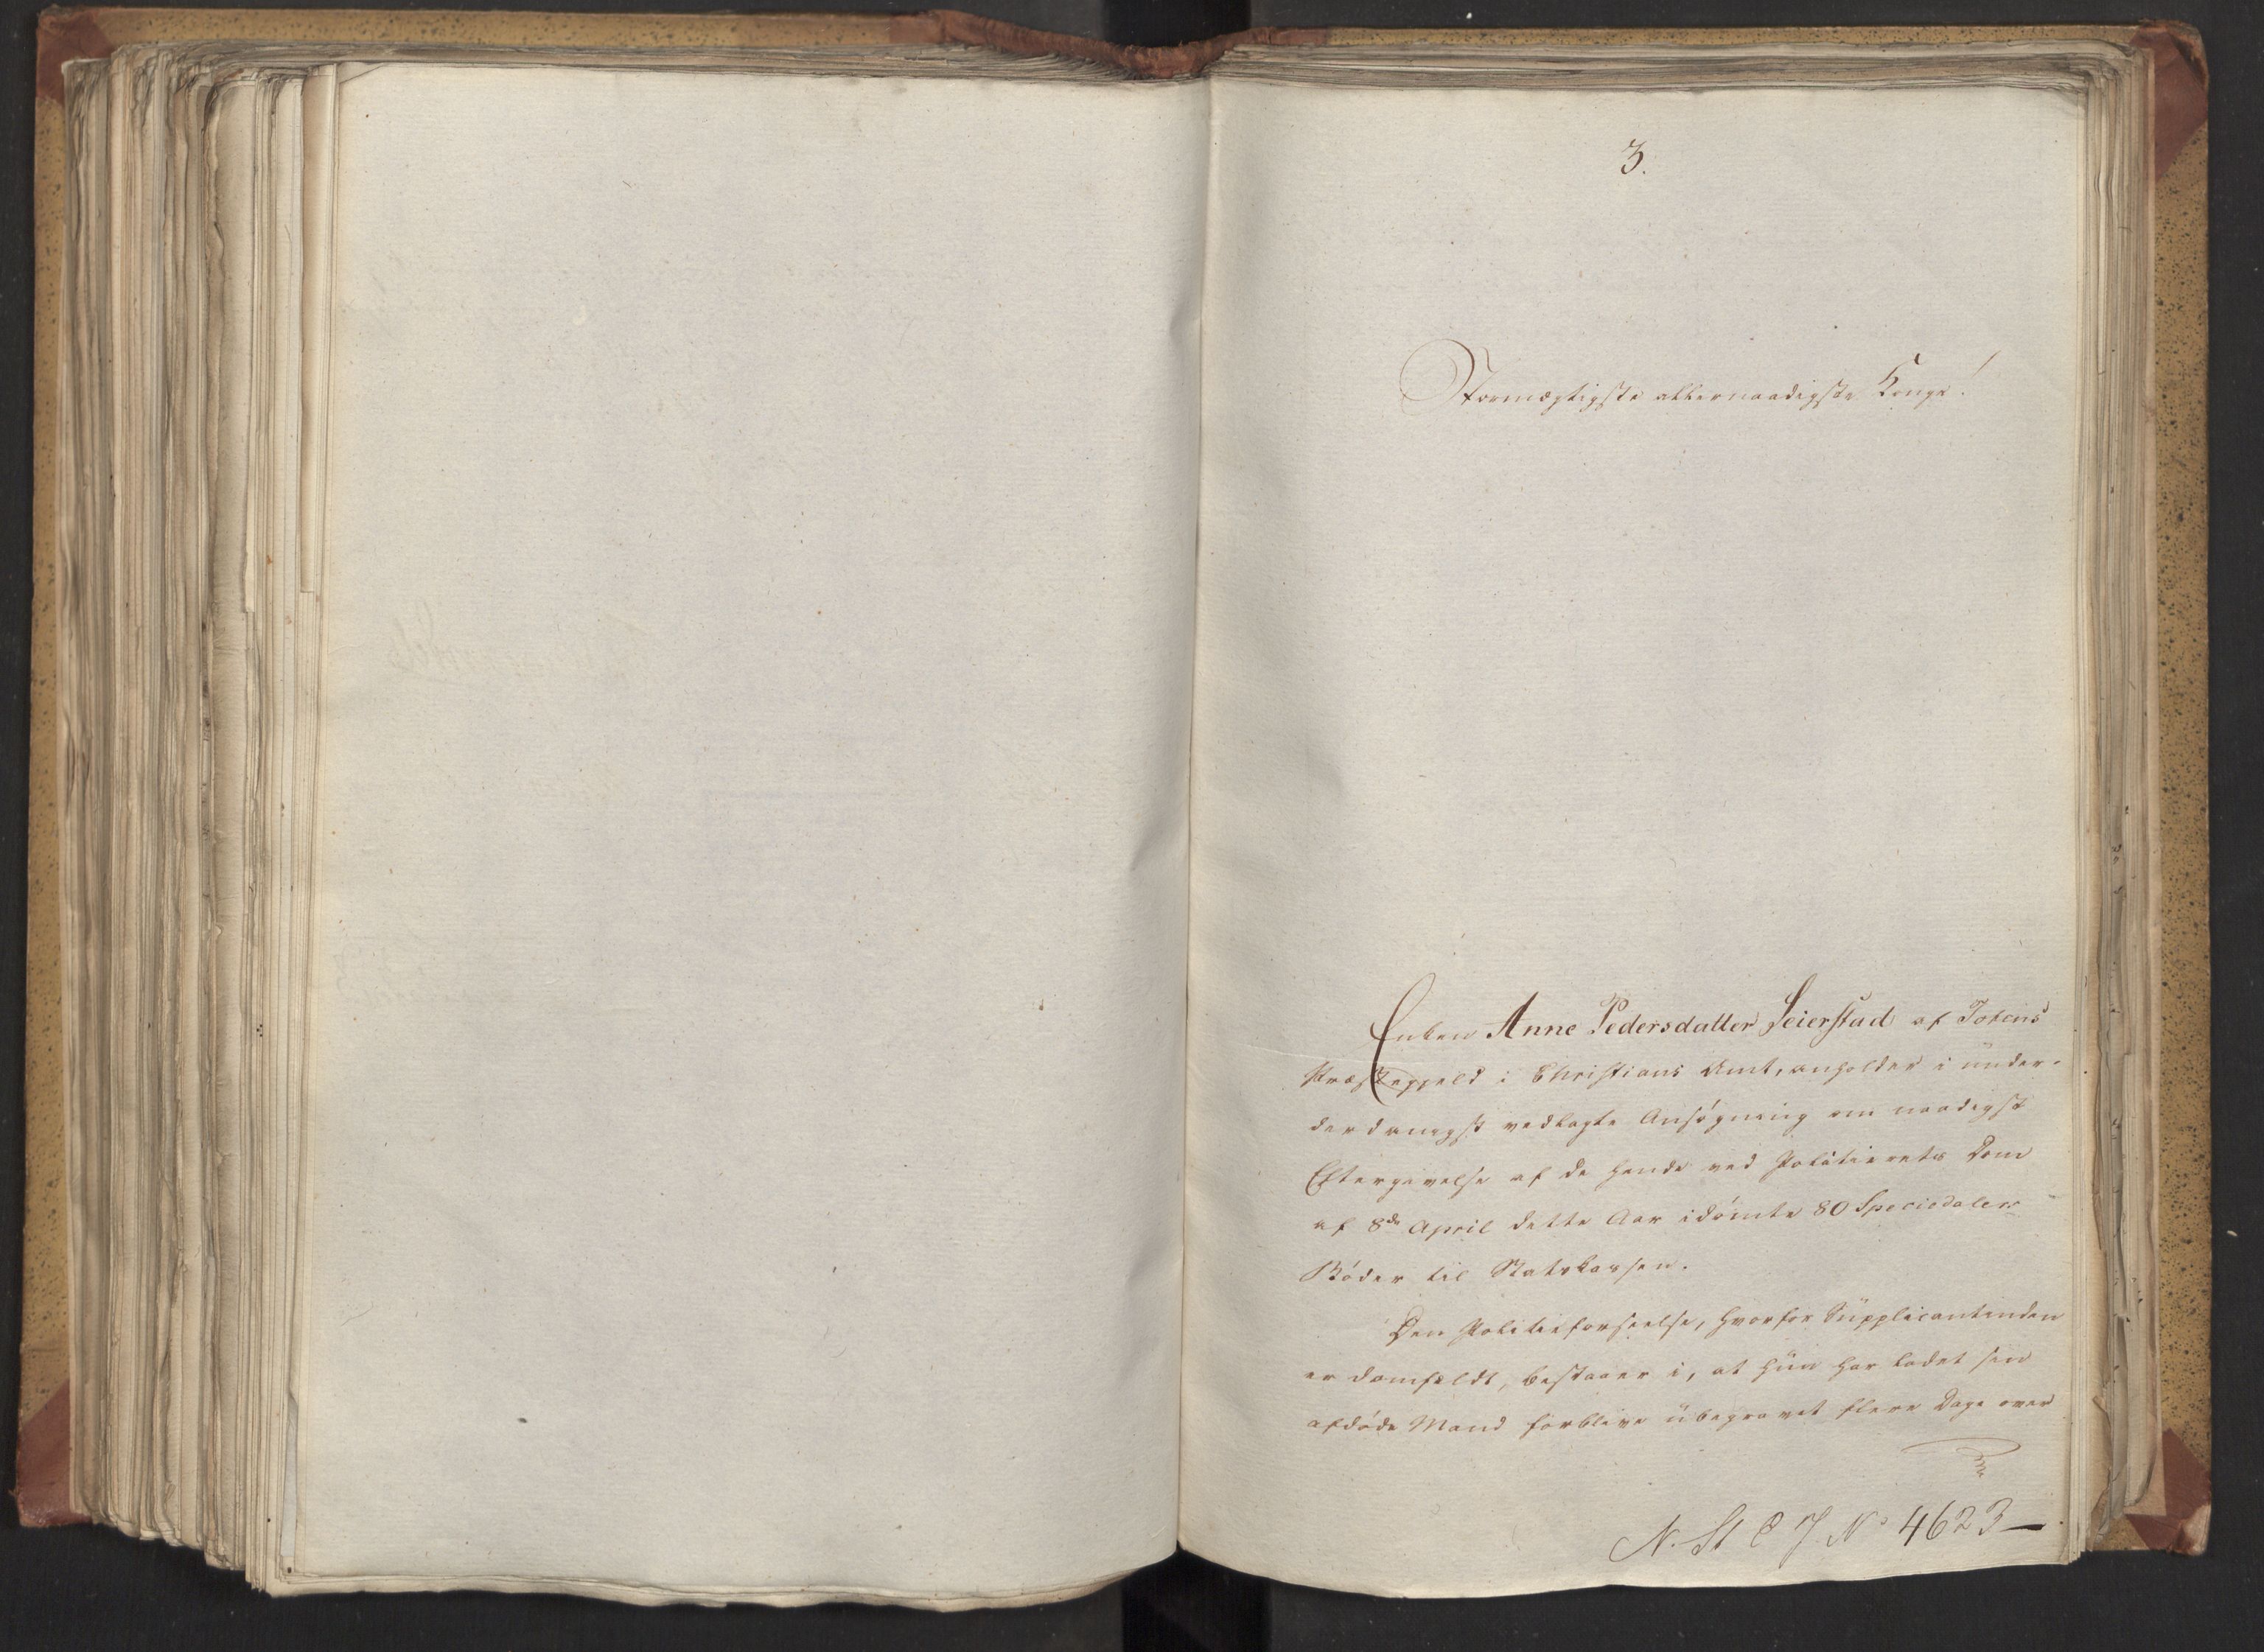 3.
Stormægtigste allernaadigste Konge!
Enken Anne Pedersdatter Seierstad af Totens
Præstegjeld i Christians Amt, anholder i under-
derdanigst vedlagte Ansøgning om naadigst
Eftergivelse af de hende ved Politierets Dom
af 8de April dette Aar idømte 80 Speciedaler
Bøder til Statskassen.
Den Politieforseelse, hvorfor Supplicantinden
er domfældt, bestaaer i, at hun har ladet sin
afdøde Mand forblive ubegravet flere Dage over
N. St C J. No 4623—